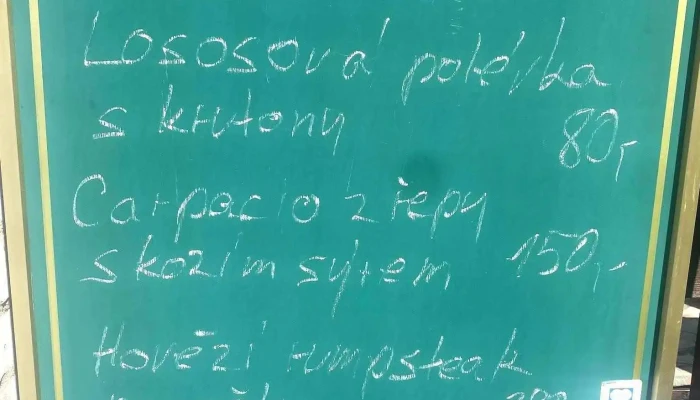 Lososová polévka
s krutony 80,-
Carpacio z řepy
s kozím sýrem 150,-
Hovězí rumpsteak